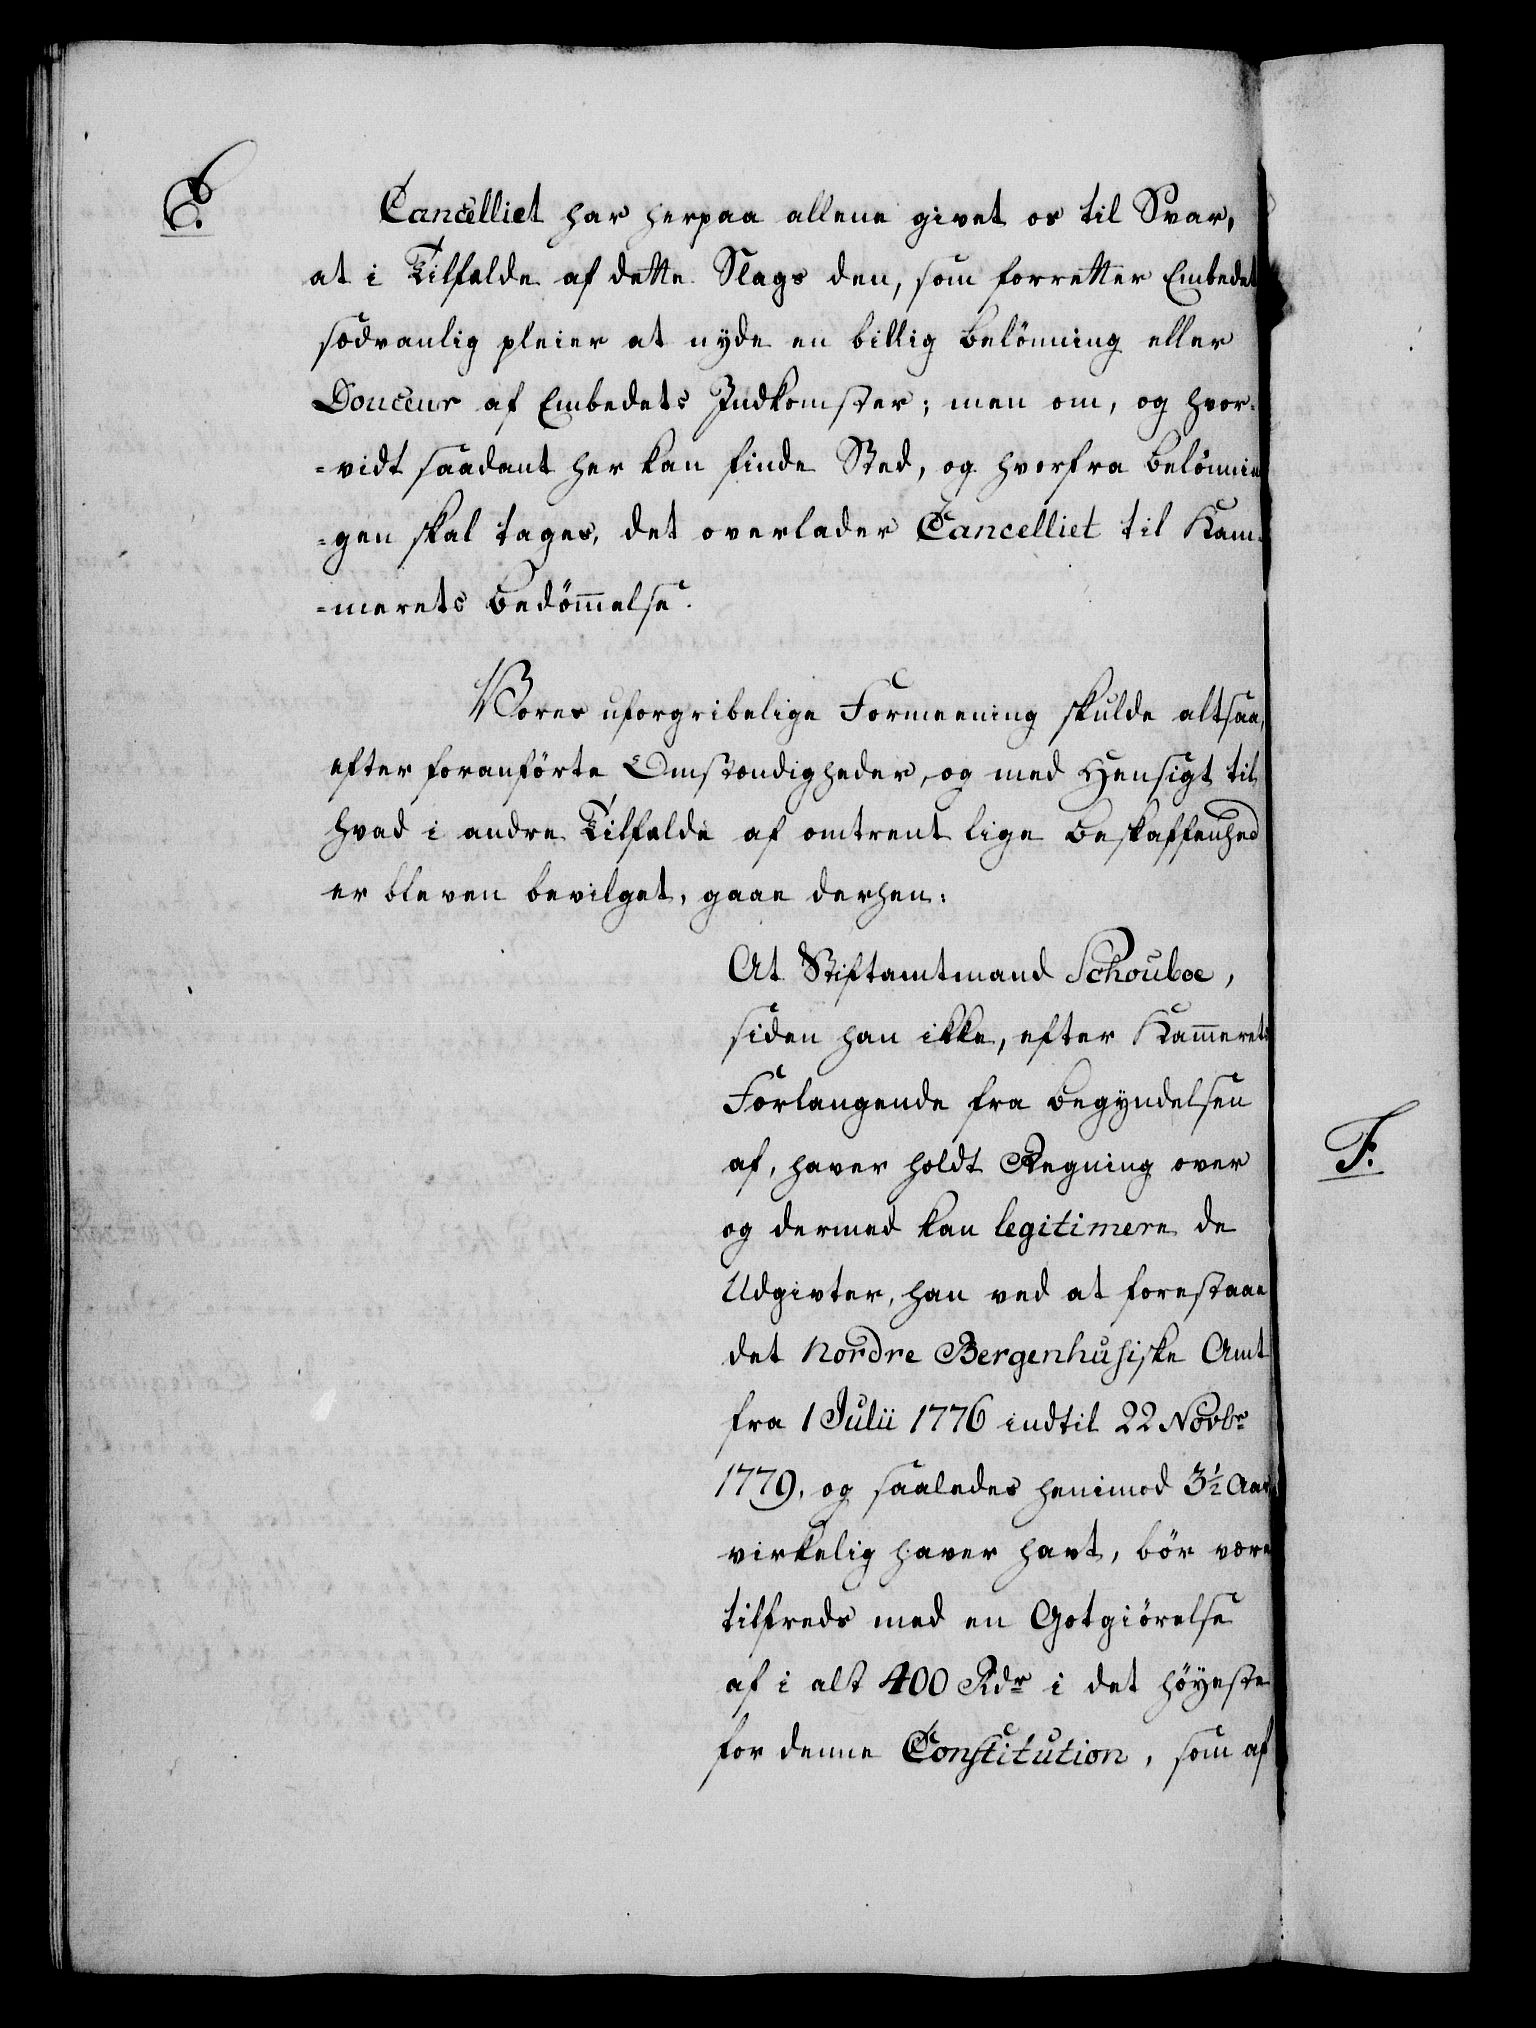 E.
Cancelliet har herpaa allene givet os til Svar,
at i Tilfælde af dette Slags den, som forretter Embedet
sædvanlig pleier at nyde en billig Belönning eller
Douceur af Embedets Indkomster; men om, og hvor-
=vidt saadant her kan finde Sted, og hvorfra Belönnin
=gen skal tages, det overlader Cancelliet til Kam-
=merets Bedömmelse.
Vores uforgribelige Formeening skulde altsaa,
efter foranförte Omstændigheder, og med Hensigt til
hvad i andre Tilfælde af omtrent lige Beskaffenhed
er bleven bevilget, gaae derhen:
At Stiftamtmand Schouboe,
siden han ikke, efter Kammerets
Forlangende fra Begyndelsen
af, haver holdt Regning over
og dermed kan legitimere de
Udgivter, han ved at forestaae
det Nordre Bergenhusiske Amt
F.
fra 1 Julii 1776 indtil 22 Novbr
1779, og saaledes henimod 3½ Aar
virkelig haver havt, bör være
tilfreds med en Gotgiörelse
af i alt 400 Rdr i det höyeste
for denne Constitution, som af